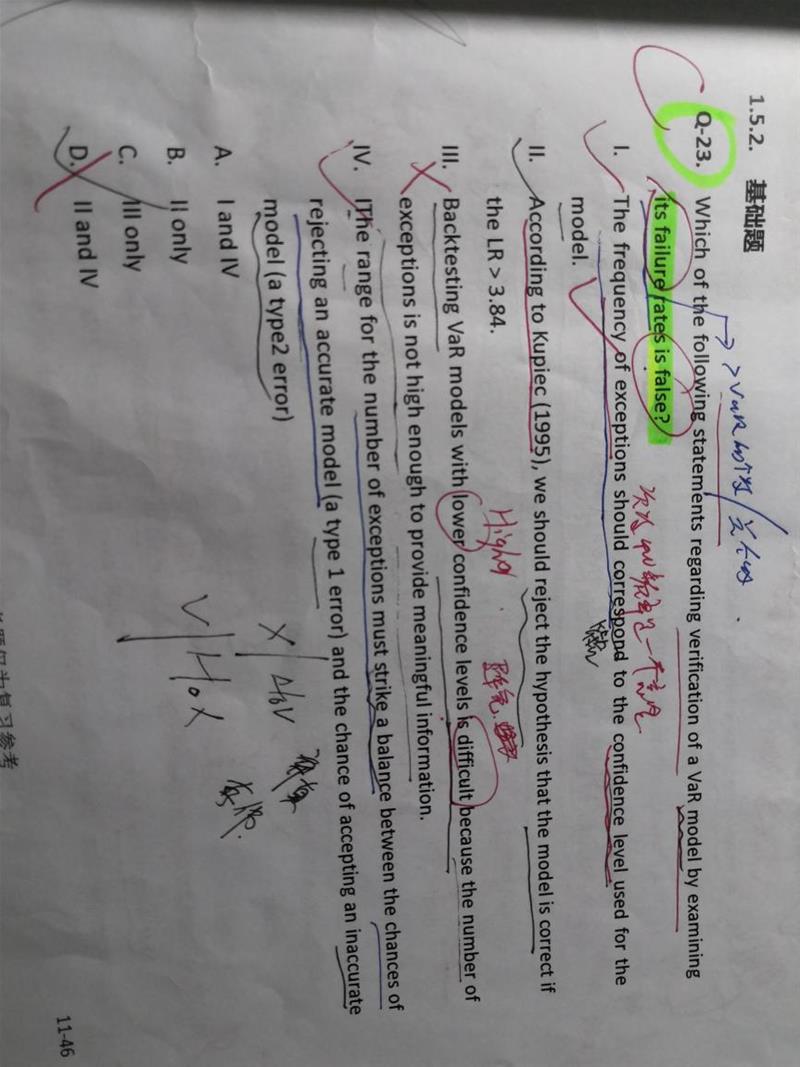 1.5.2. 基础题
> VaR 的个数 / 总个数
Q-23. Which of the following statements regarding verification of a VaR model by examining
its failure rates is false?
I. The frequency of exceptions should correspond to the confidence level used for the
model.
II. According to Kupiec (1995), we should reject the hypothesis that the model is correct if
the LR > 3.84.
High
III. Backtesting VaR models with lower confidence levels is difficult because the number of
exceptions is not high enough to provide meaningful information.
IV. The range for the number of exceptions must strike a balance between the chances of
rejecting an accurate model (a type 1 error) and the chance of accepting an inaccurate
model (a type2 error)
A. I and IV
B. II only
C. III only
D. II and IV
11-46